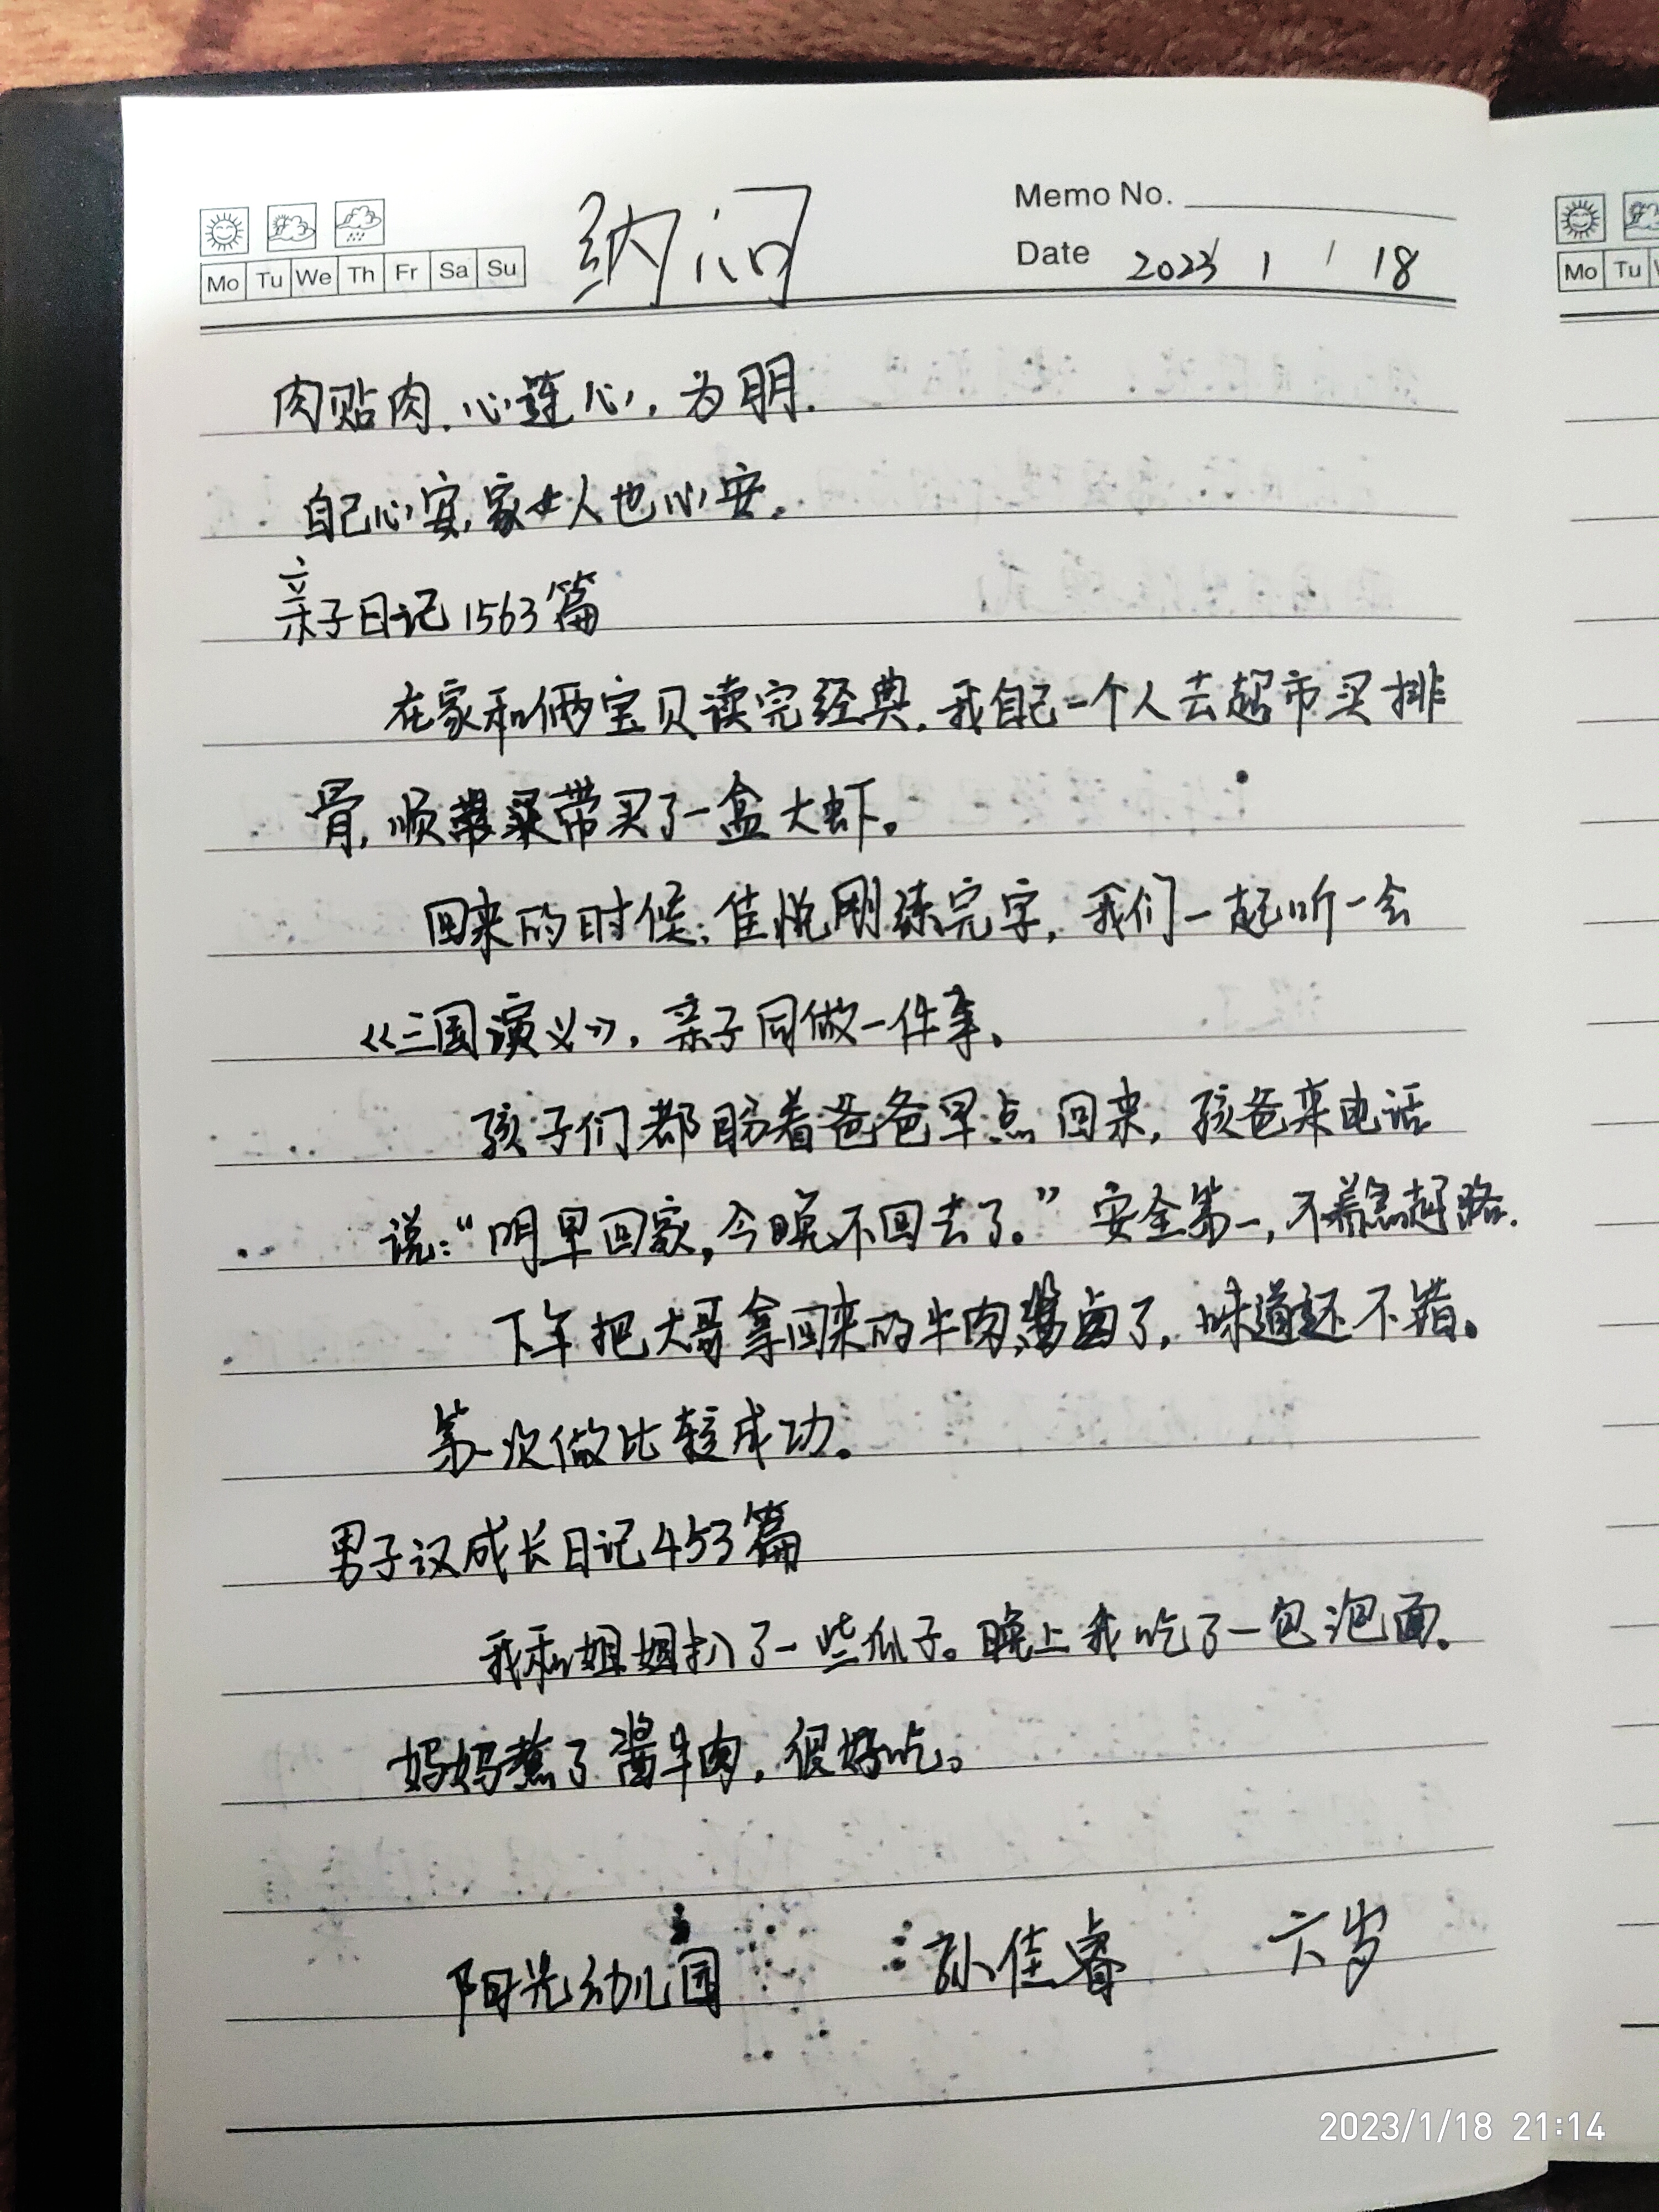 Memo No.
纳闷
Date 2023 / 1 / 18
Mo Tu We Th Fr Sa Su
Mo Tu
肉贴肉.心连心,为朋.
自己心安,家人也心安.
亲子日记1563篇
在家和俩宝贝读完经典.我自己一个人去超市买排
骨,顺带买了一盒大虾。
回来的时候;佳悦刚练完字,我们一起听一会
《三国演义》,亲子同做一件事、
孩子们都盼着爸爸早点回来,孩爸来电话
说:“明早回家,今晚不回去了。”安全第一,不着急赶路.
下午把大哥拿回来的牛肉酱卤了,味道还不错。
第一次做比较成功。
男子汉成长日记453篇
我和姐姐扒了一些瓜子。晚上我吃了一包泡面。
妈妈煮了酱牛肉,很好吃。
阳光幼儿园 孙佳睿 六岁
2023/1/18 21:14